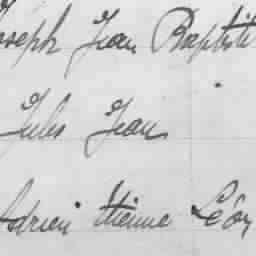 Joseph Jean Baptiste
Jules Jean
Adrien Etienne Léon